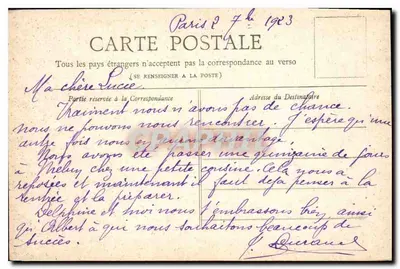 Paris 2 7bre 1923
CARTE POSTALE
Tous les pays étrangers n'acceptent pas la correspondance au verso
(SE RENSEIGNER A LA POSTE)
Ma chère Lucie
Partie réservée à la Correspondance
Adresse du Destinataire
Vraiment nous n'avons pas de chance
nous ne pouvons nous rencontrer. J'espère qu'une
autre fois nous en davantage.
Nous avons été passer une quinzaine de jours
à chez une petite cousine. Cela nous a
reposées et maintenant il faut déjà penser à la
rentrée et la préparer.
Delphine et moi nous t'embrassons bien ainsi
qu'Albert à qui nous souhaitons beaucoup de
succès.
Durand